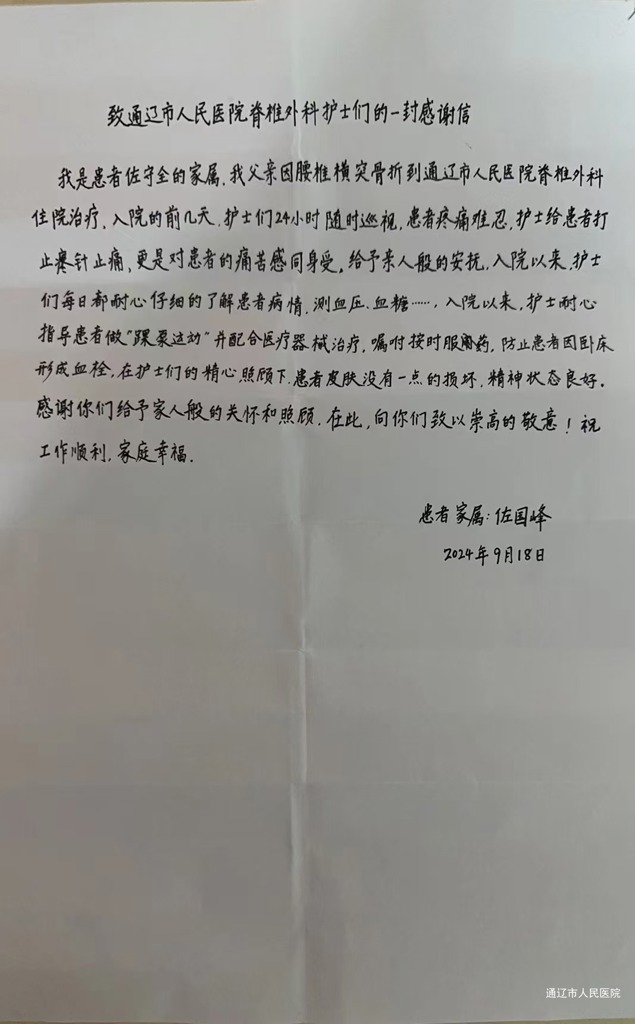 致通辽市人民医院脊椎外科护士们的一封感谢信
我是患者佐守全的家属，我父亲因腰椎横突骨折到通辽市人民医院脊椎外科
住院治疗，入院的前几天，护士们24小时随时巡视，患者疼痛难忍，护士给患者打
止疼针止痛，更是对患者的痛苦感同身受。给予亲人般的安抚，入院以来，护士
们每日都耐心仔细的了解患者病情，测血压、血糖……，入院以来，护士耐心
指导患者做“踝泵运动”并配合医疗器械治疗，嘱咐按时服药，防止患者因卧床
形成血栓，在护士们的精心照顾下，患者皮肤没有一点的损坏，精神状态良好。
感谢你们给予家人般的关怀和照顾，在此，向你们致以崇高的敬意！祝
工作顺利，家庭幸福.
患者家属：佐国峰
2024年9月18日
通辽市人民医院